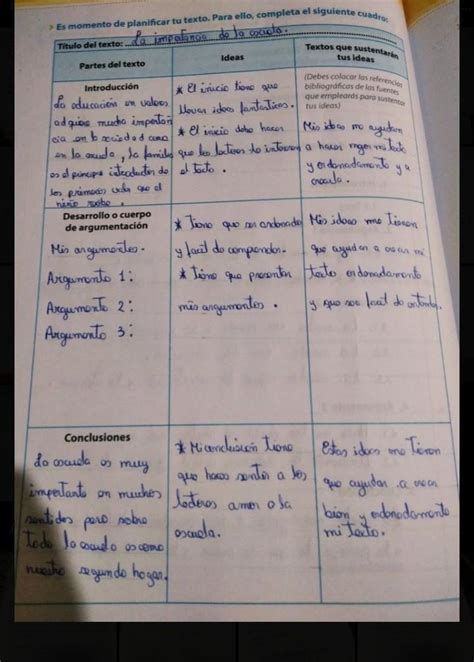 > Es momento de planificar tu texto. Para ello, completa el siguiente cuadro:
Título del texto: La importancia de la escuela.
Partes del texto
Ideas
Textos que sustentarán
tus ideas
Introducción
La educación en valores
adquiere mucha importan
cia en la sociedad como
en la escuela, la familia
es el principal introductor de
los primeros que el
niño recibe.
* El inicio tiene que
llevar ideas fantásticas.
* El inicio debe hacer
que los lectores lo interesen
el texto.
(Debes colocar las referencias
bibliográficas de las fuentes
que emplearás para sustentar
tus ideas)
Mis ideas me ayudan
a hacer mejor mi texto
y ordenadamente y a
Desarrollo o cuerpo
de argumentación
Mis argumentos.
Argumento 1:
Argumento 2:
Argumento 3:
* Tiene que ser ordenado
y facil de comprender.
* Tiene que presentar
mis argumentos.
Mis ideas me tienen
que ayudar a crear mi
texto ordenadamente
y que sea facil de entender.
Conclusiones
La escuela es muy
importante en muchos
sentidos pero sobre
todo la escuela es como
nuestro segundo hogar.
* Mi conclusión tiene
que hacer sentir a los
lectores amor a la
escuela.
Estas ideas me tienen
que ayudar a crear
bien y ordenadamente
mi texto.